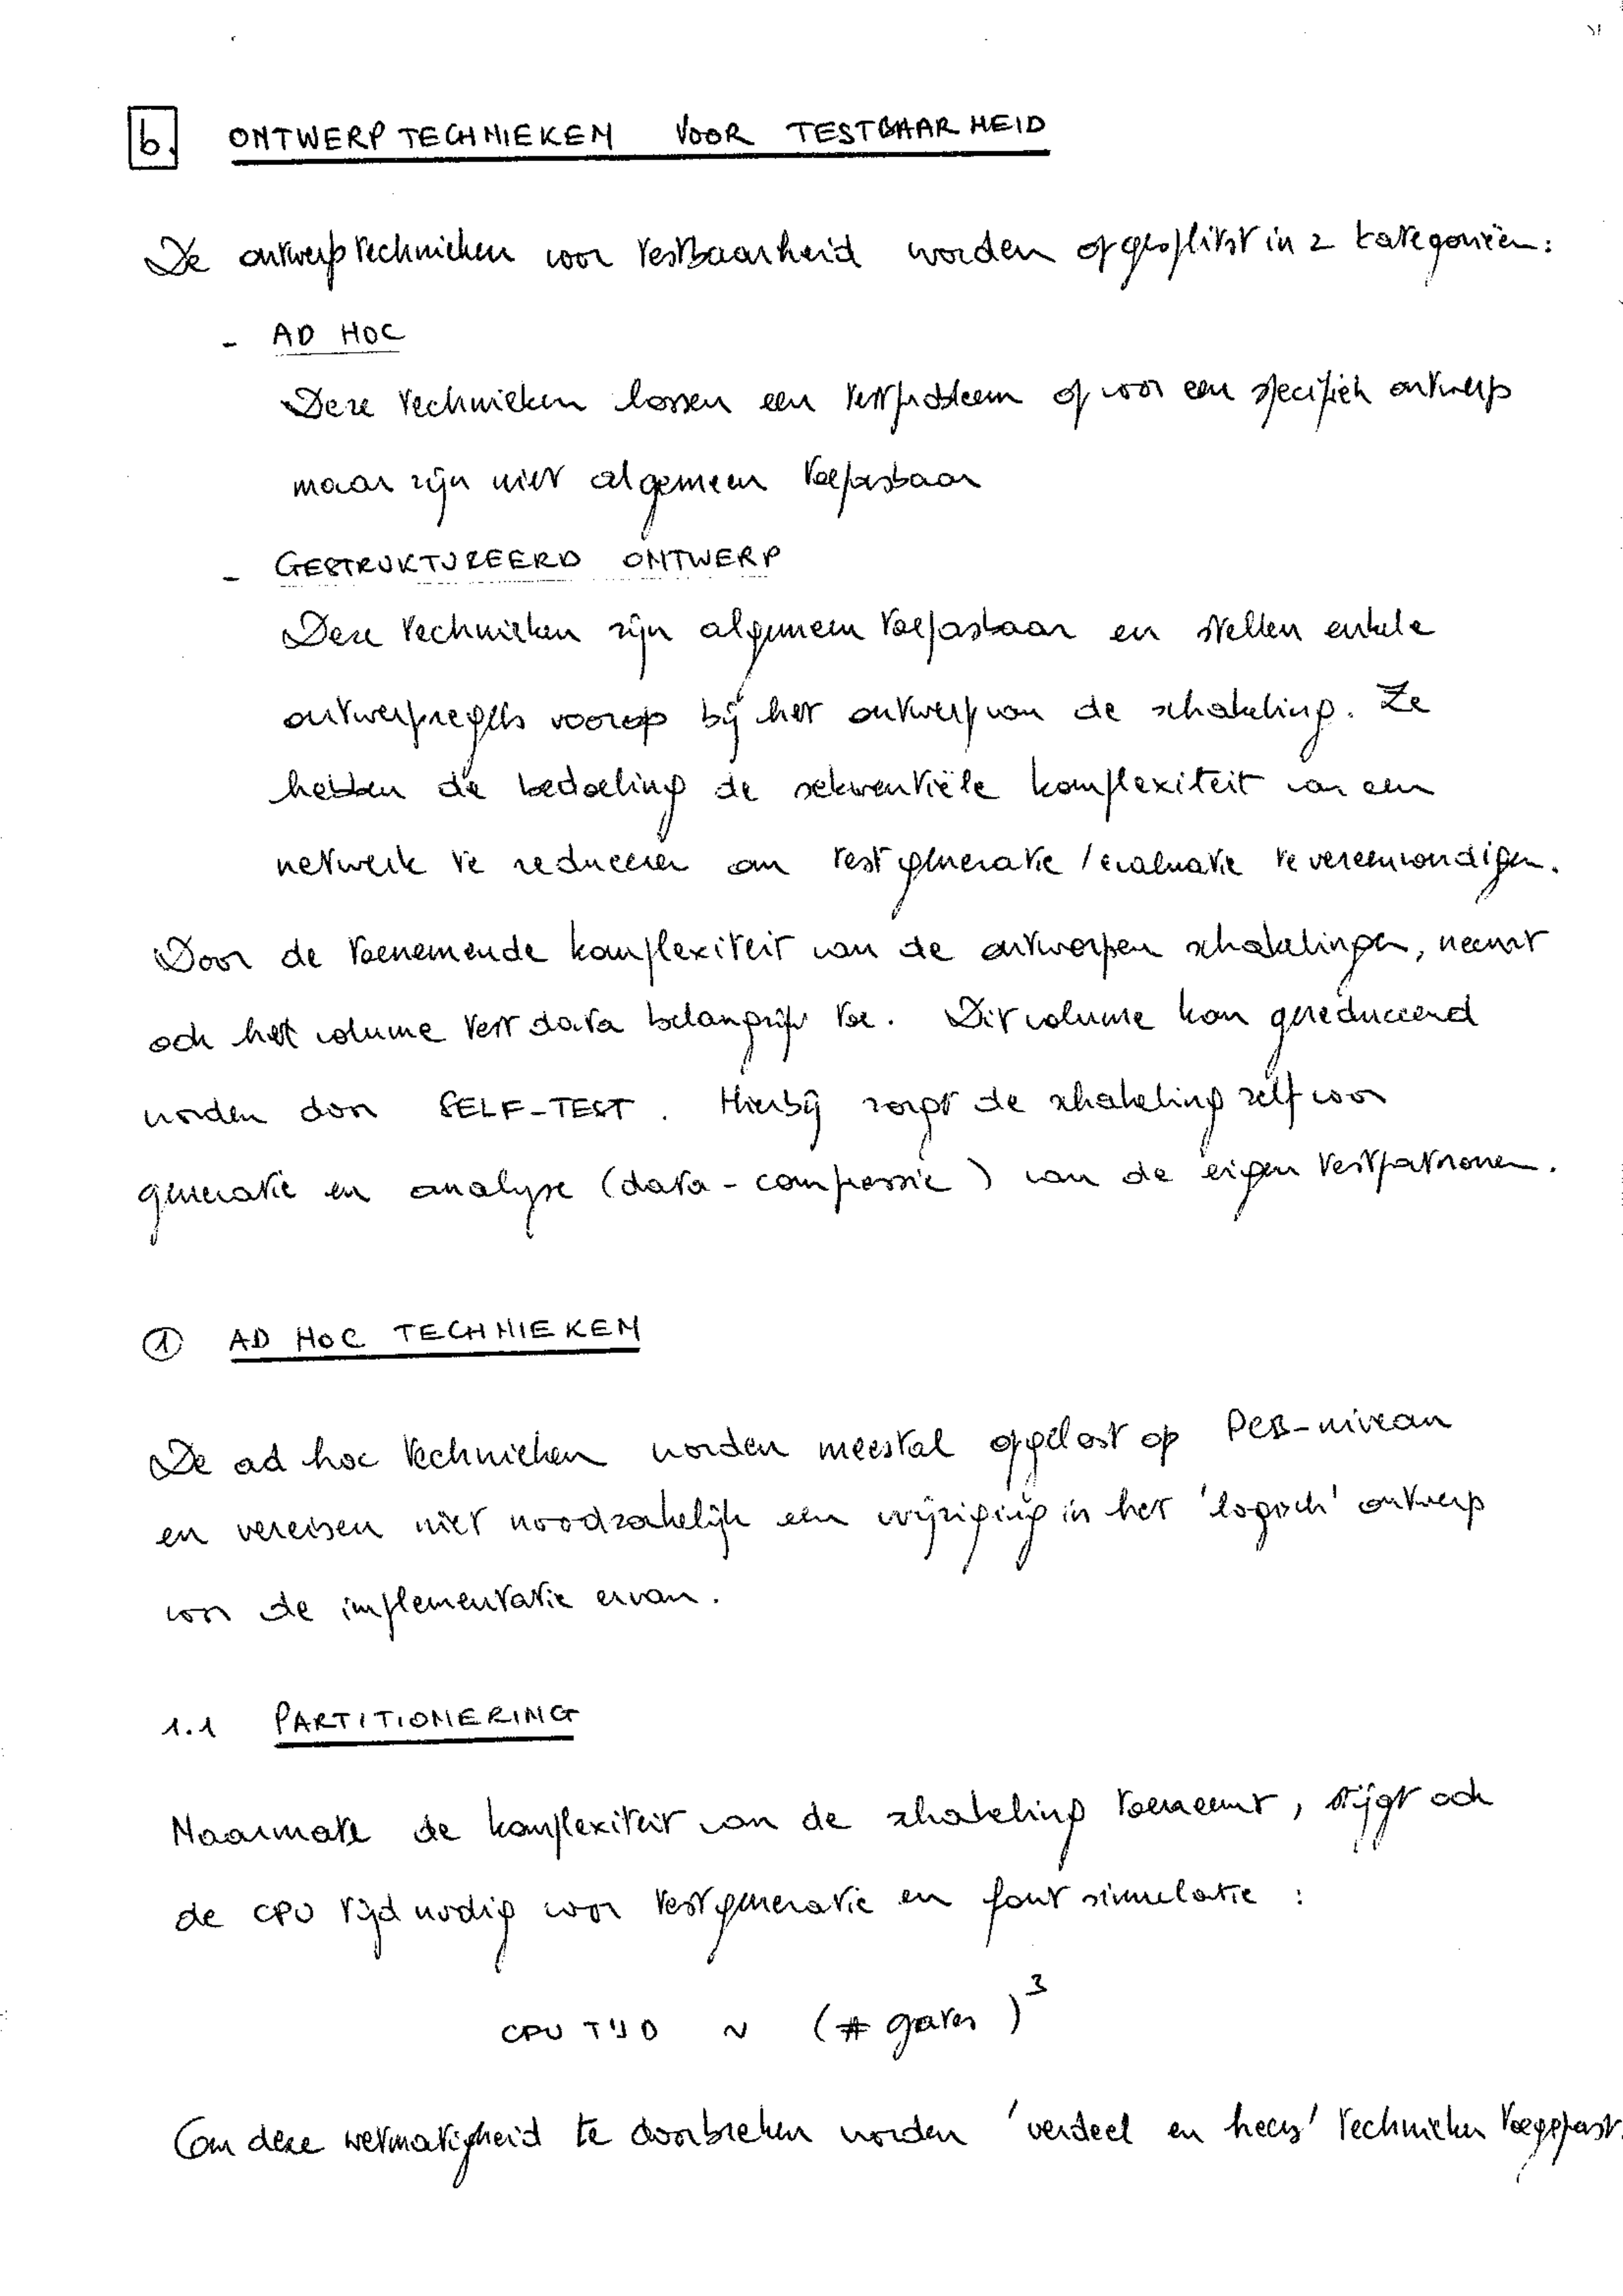 b. ONTWERPTECHNIEKEN VOOR TESTBAARHEID
De ontwerptechnieken voor testbaarheid worden opgesplitst in 2 kategorieën:
- AD HOC
Deze technieken lossen een testprobleem op voor een specifiek ontwerp
maar zijn niet algemeen toepasbaar
- GESTRUKTUREERD ONTWERP
Deze technieken zijn algemeen toepasbaar en stellen enkele
ontwerpregels voorop bij het ontwerp van de schakeling. Ze
hebben de bedoeling de sekwentiële komplexiteit van een
netwerk te reduceren om testgeneratie / evaluatie te vereenvoudigen.
Door de toenemende komplexiteit van de ontworpen schakelingen, neemt
ook het volume test data belangrijk toe. Dit volume kan gereduceerd
worden door SELF-TEST. Hierbij zorgt de schakeling zelf voor
generatie en analyse (data-compressie) van de eigen testpatronen.
1 AD HOC TECHNIEKEN
De ad hoc technieken worden meestal opgelost op PCB-niveau
en vereisen niet noodzakelijk een wijziging in het 'logisch' ontwerp
voor de implementatie ervan.
1.1 PARTITIONERING
Naarmate de komplexiteit van de schakeling toeneemt, stijgt ook
de CPU tijd nodig voor testgeneratie en fout simulatie :
CPU TIJD ~ (# gates)³
Om deze wetmatigheid te doorbreken worden 'verdeel en heers' technieken toegepast.